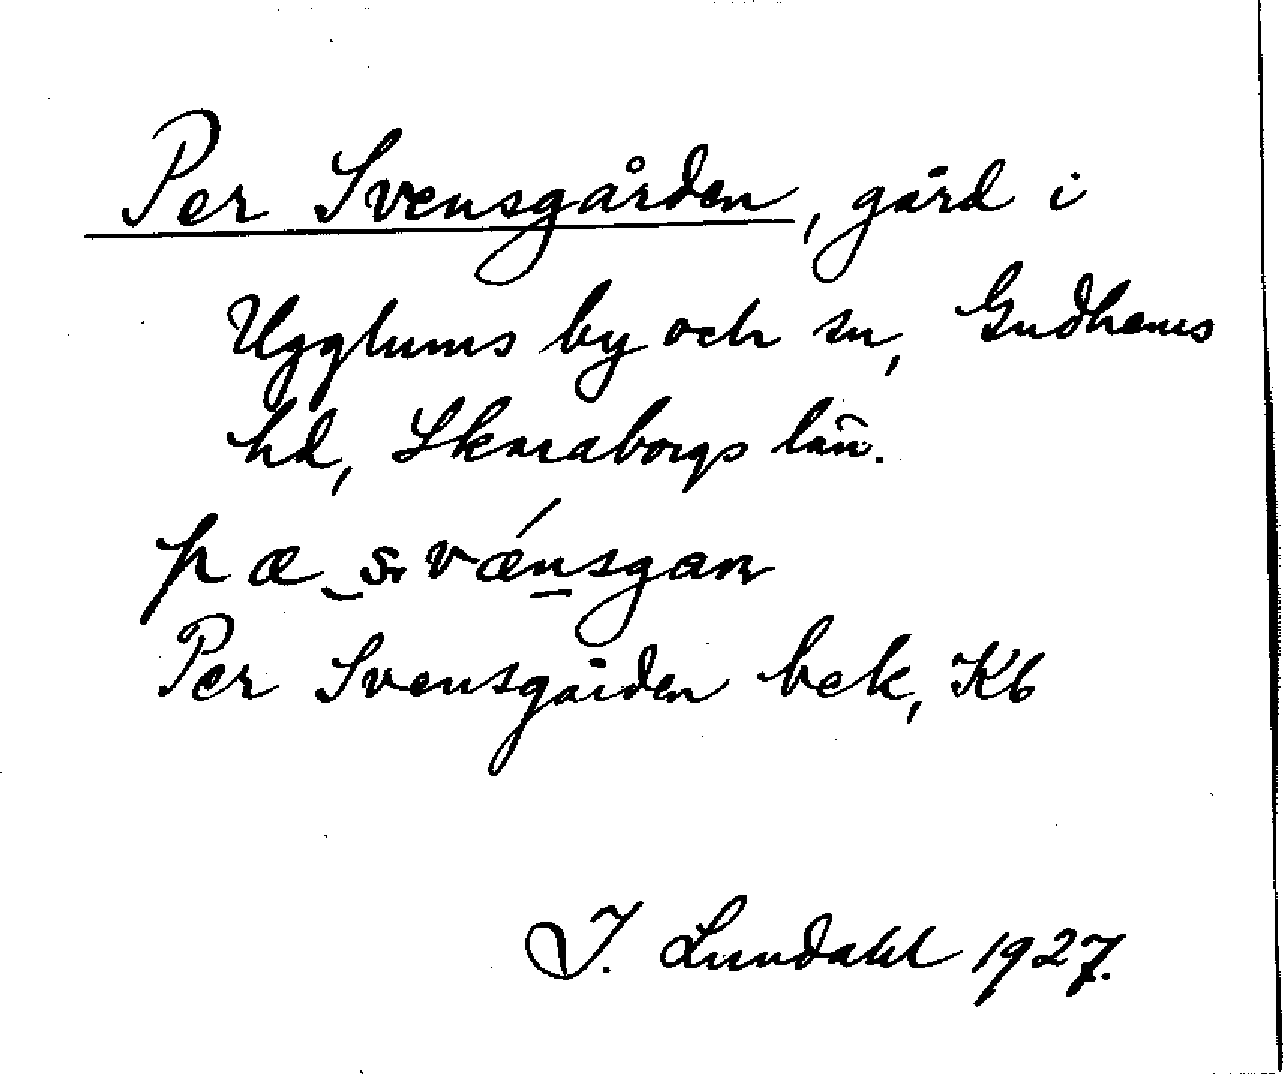 Per Svensgården, gård i
Ugglums by och sn, Gudhems
hd, Skaraborgs län.
pæ svǽnsgan
Per Svensgården bek, Kb
J. Lundahl 1927.